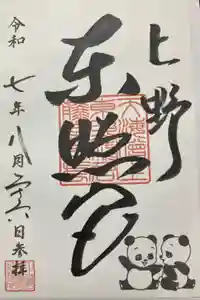 上野
東照宮
令和七年八月二十六日参拝